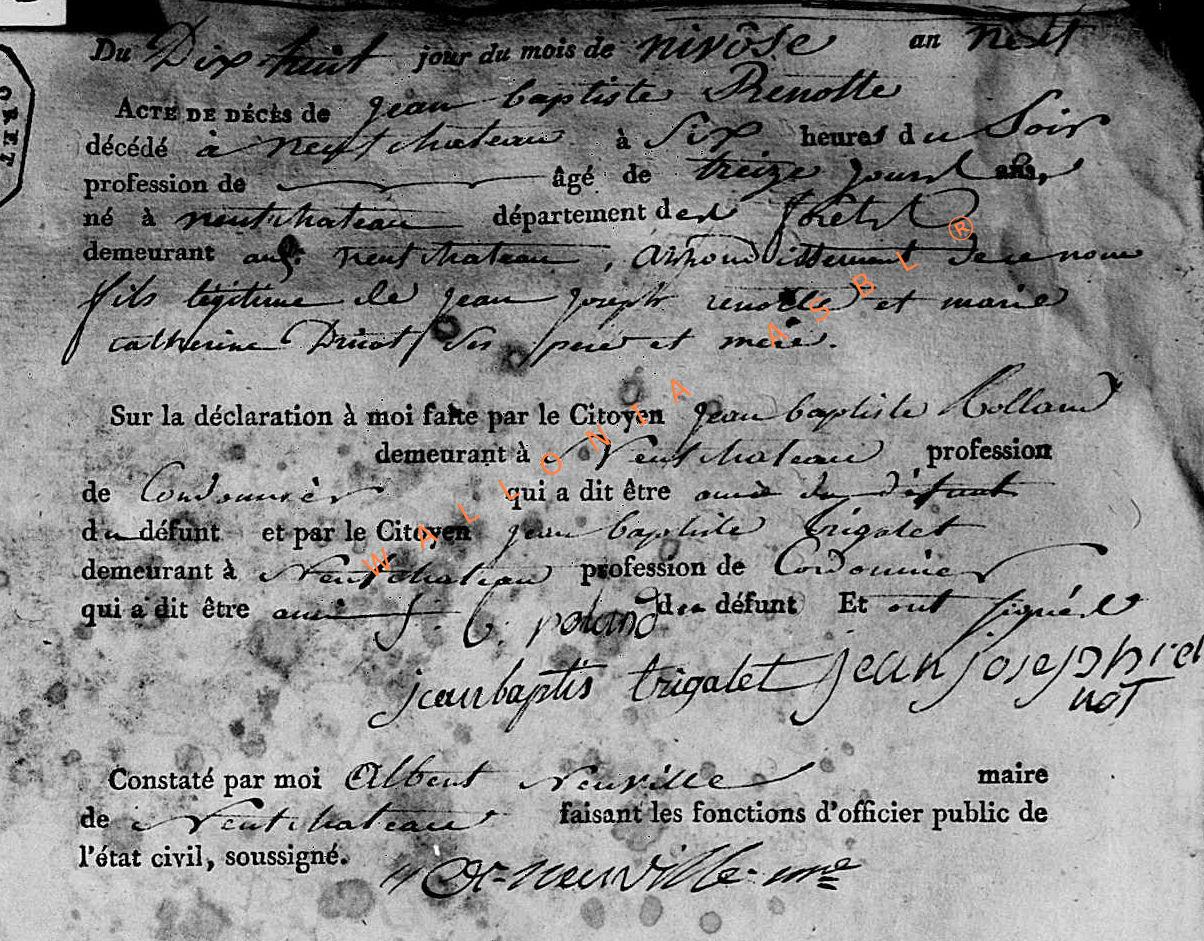 Du Dix huit jour du mois de nivôse an neuf
ACTE DE DÉCÈS de jean baptiste Renotte
décédé à neufchateau à Six heures du Soir
profession de âgé de treize jours ans,
né à neufchateau département des forêts
demeurant neufchateau, arrondissement de ce nom
fils légitime de jean joseph renotte et marie
catherine Ses pere et mere.
Sur la déclaration à moi faite par le Citoyen jean baptiste Rolland
demeurant à Neufchateau profession
de Cordonnier qui a dit être amis du défunt
du défunt et par le Citoyen jean baptiste Trigalet
demeurant à Neufchateau profession de Cordonnier
qui a dit être ami du défunt Et ont signés
j. b. roland
jean baptis trigalet jean joseph re
not
Constaté par moi Albert Neuville maire
de Neufchateau faisant les fonctions d'officier public de
l'état civil, soussigné.
neuville mre
CRET
WALLONIA ASBL ®